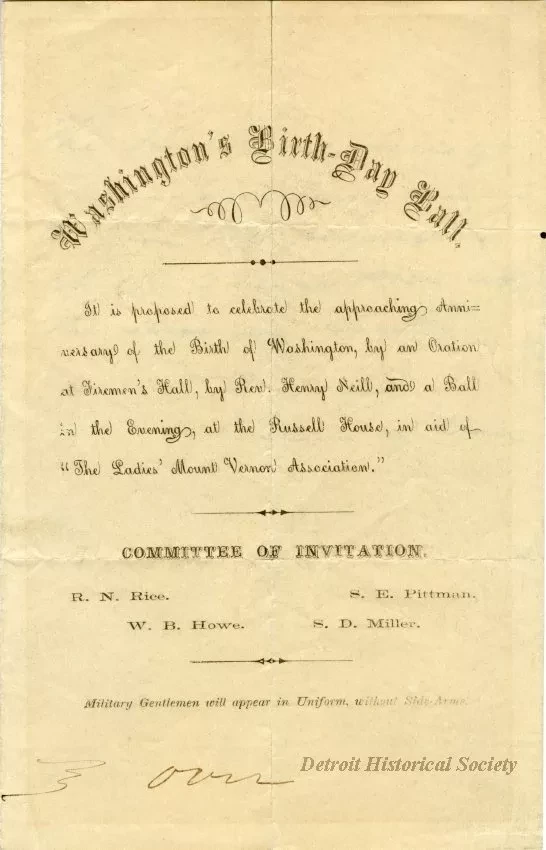 Washington's Birth-Day Ball.
It is proposed to celebrate the approaching Anni=
versary of the Birth of Washington, by an Oration
at Firemen's Hall, by Rev. Henry Neill, and a Ball
in the Evening, at the Russell House, in aid of
"The Ladies' Mount Vernon Association."
COMMITTEE OF INVITATION.
R. N. Rice. S. E. Pittman.
W. B. Howe. S. D. Miller.
Military Gentlemen will appear in Uniform, without Side-Arms.
over
Detroit Historical Society